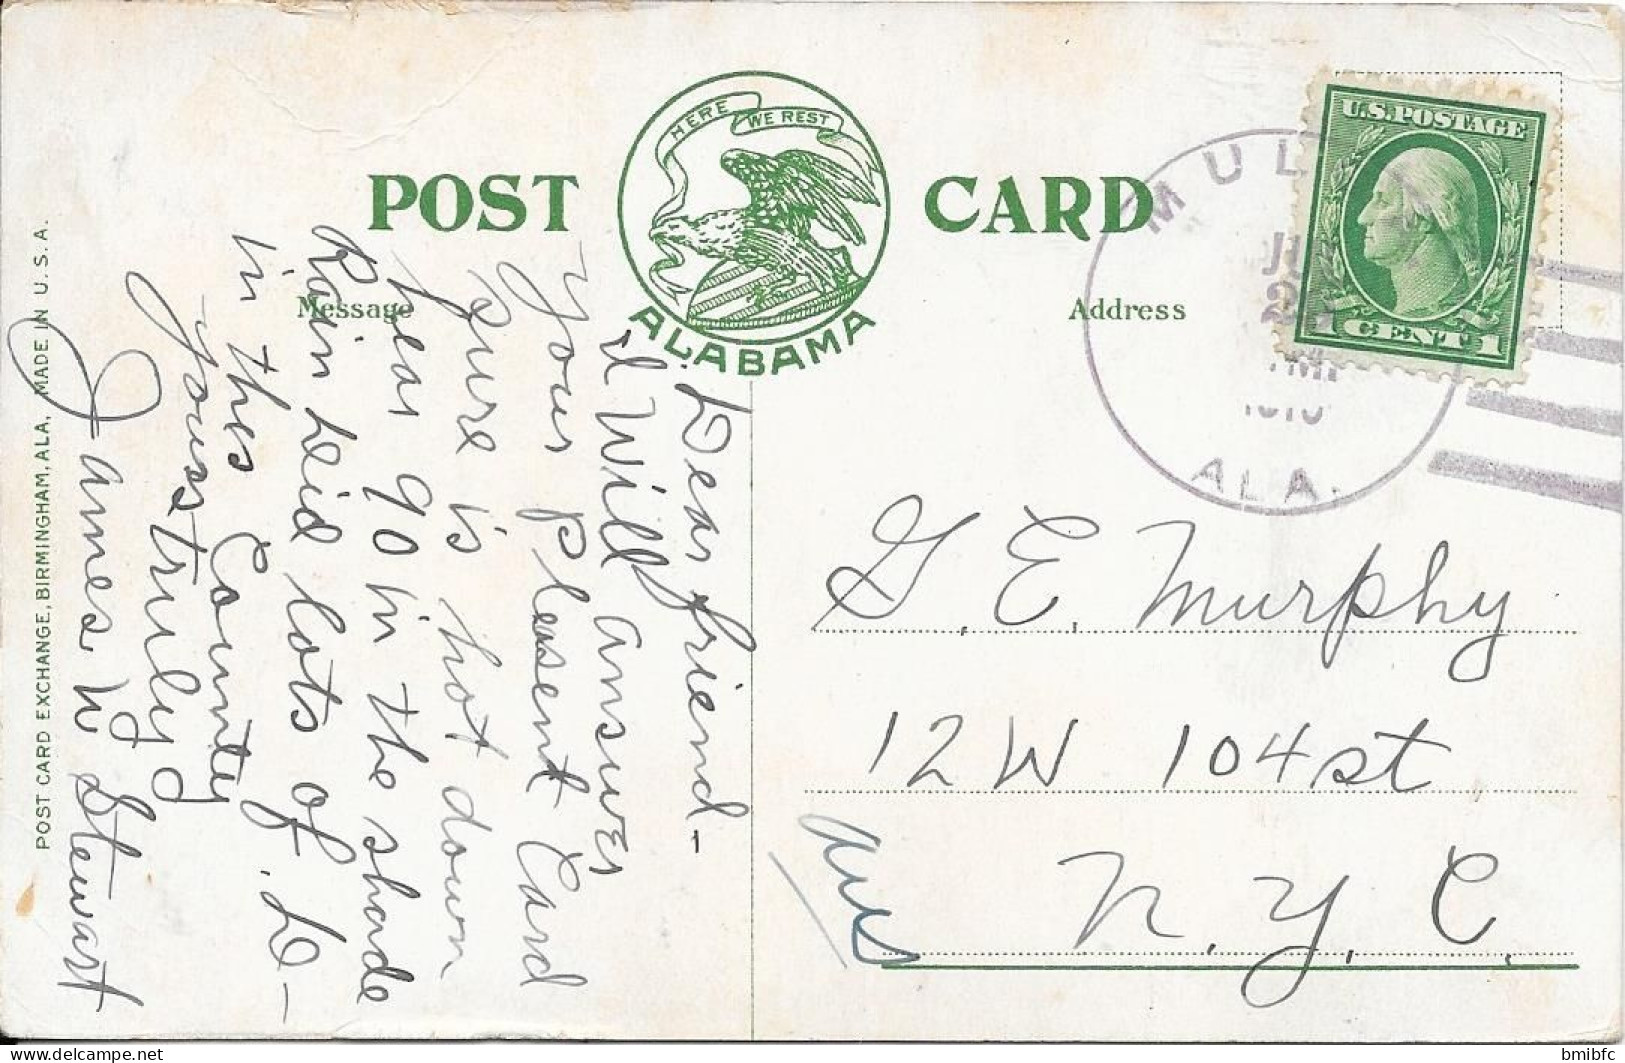 POST CARD
HERE WE REST
ALABAMA
Message
Address
U.S. POSTAGE
1 CENT 1
MUL
2
PM
ALA.
Dear friend-
I Will answer
your Plesent Card
sure is hot down
hear 90 in the shade
Rain hid lots of D-
in thes County
yours truly
James W Stewart
G. E. Murphy
12 W 104 st
N. Y. C.
ans
POST CARD EXCHANGE, BIRMINGHAM, ALA. MADE IN U. S. A.
https://www.delcampe.net
bmibfc